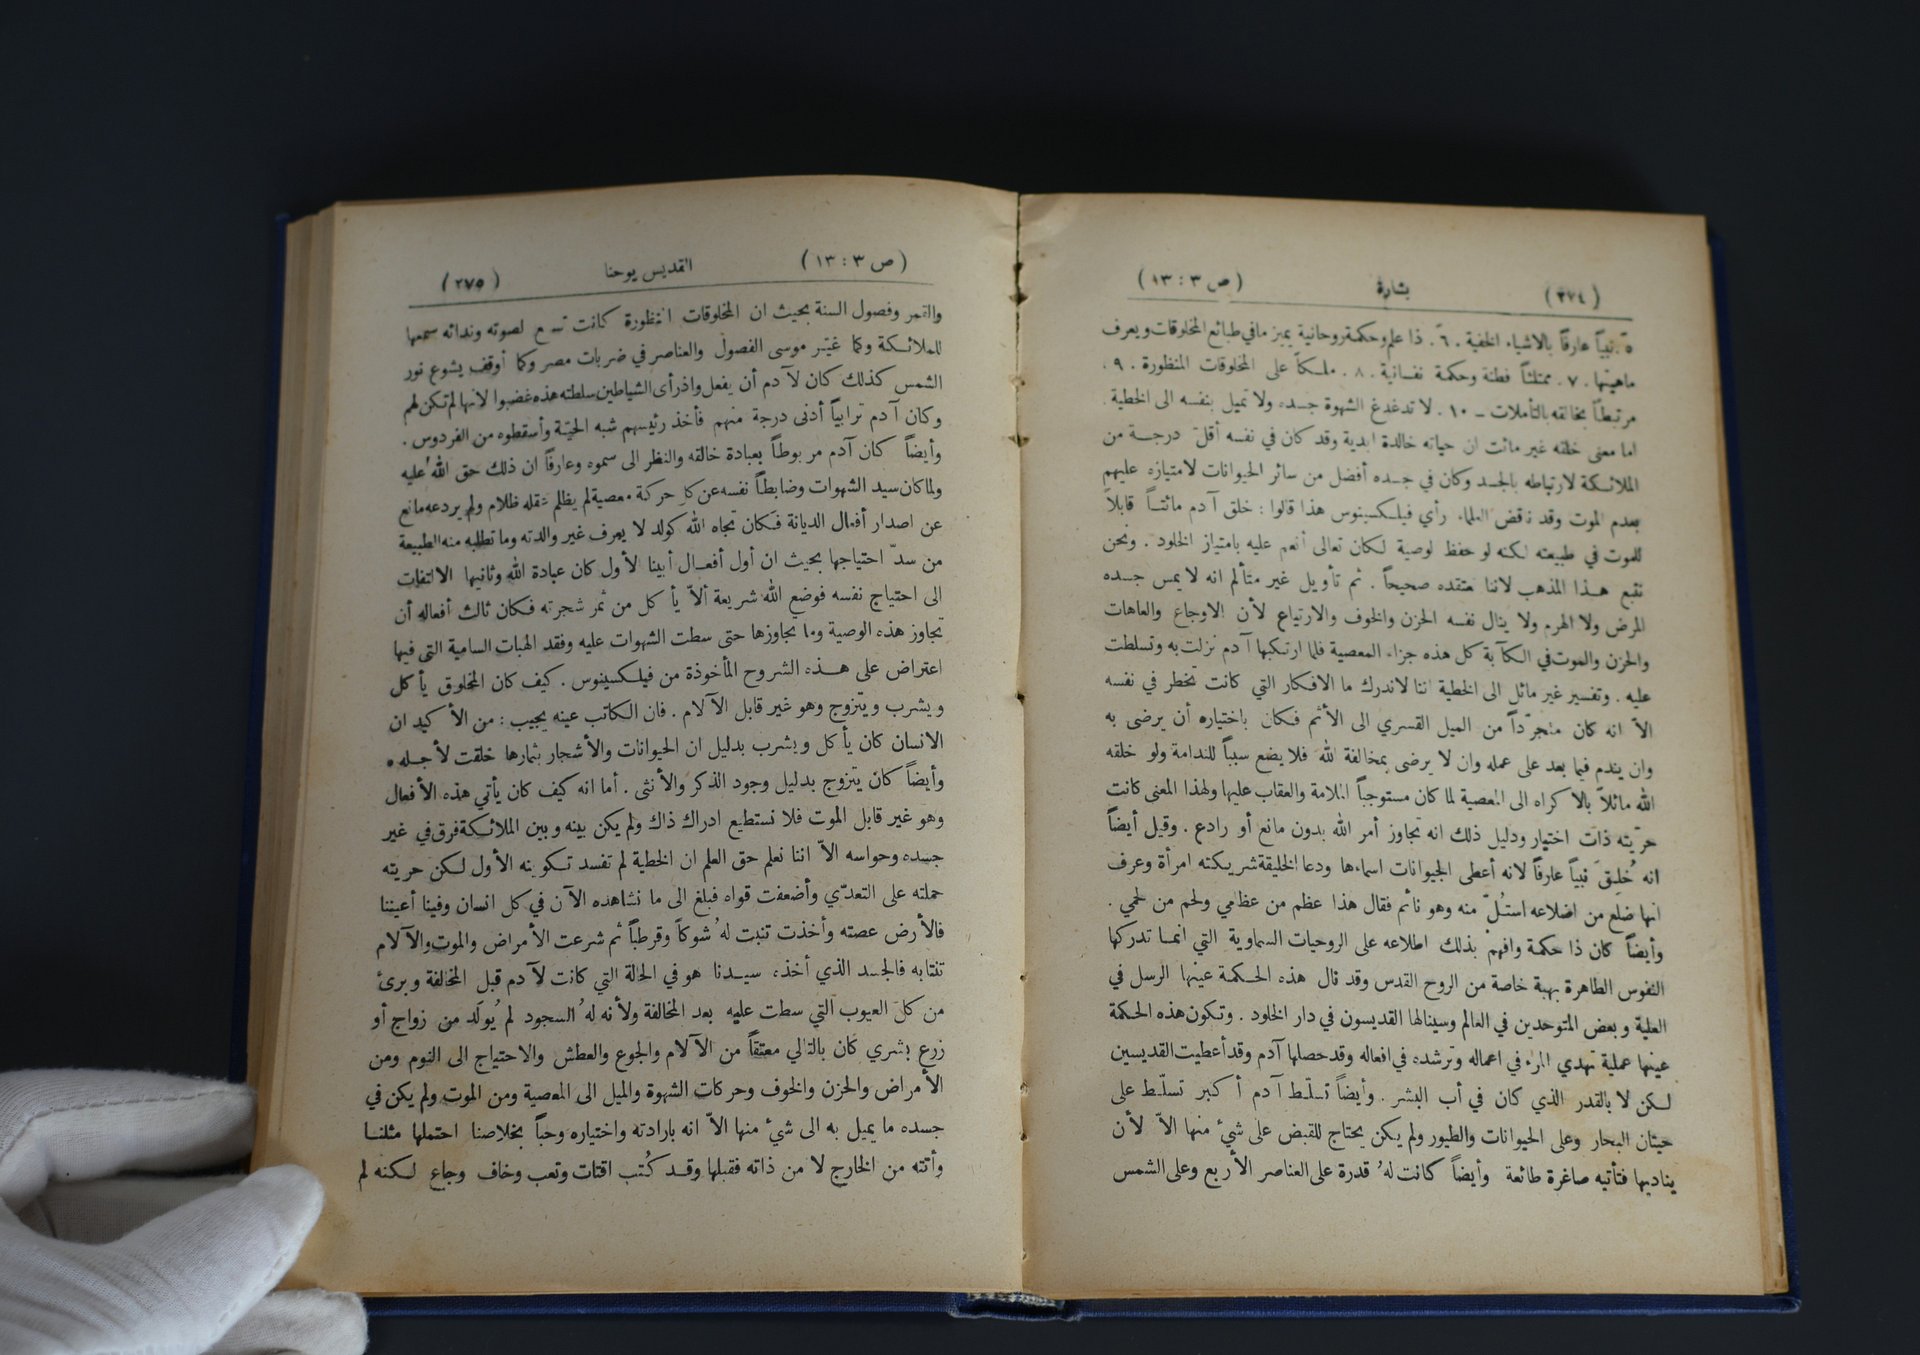 (٢٧٤) بشارة (ص ٣ : ١٣)
٥. نبياً عارفاً بالاشياء الخفية . ٦ . ذا علم وحكمة روحانية يميز ما في طبائع المخلوقات ويعرف
ماهيتها . ٧ . ممتلئاً فطنة وحكمة نفسانية . ٨ . ملكاً على المخلوقات المنظورة . ٩ .
مرتبطاً بخالقه بالتأملات ــ ١٠ . لا تدغدغ الشهوة جسده ولا تميل بنفسه الى الخطية .
اما معنى خلقه غير مائت ان حياته خالدة ابدية وقد كان في نفسه أقلّ درجة من
الملائكة لارتباطه بالجسد وكان في جسده أفضل من سائر الحيوانات لامتيازه عليهم
بعدم الموت وقد نقض العلماء رأي فيلكسينوس هذا قالوا : خلق آدم مائتاً قابلاً
للموت في طبيعته لكنه لو حفظ لوصية لكان تعالى أنعم عليه بامتياز الخلود . ونحن
نتبع هذا المذهب لاننا نعتقده صحيحاً . ثم تأويل غير متألم انه لا يمس جسده
المرض ولا الهرم ولا ينال نفسه الحزن والخوف والارتياع لأن الاوجاع والعاهات
والحزن والموت في الكآبة كل هذه جزاء المعصية فلما ارتكبها آدم نزلت به وتسلطت
عليه . وتفسير غير مائل الى الخطية اننا لا ندرك ما الافكار التي كانت تخطر في نفسه
الاّ انه كان متجرّداً من الميل القسري الى الأثم فكان باختياره أن يرضى به
وان يندم فيما بعد على عمله وان لا يرضى بمخالفة الله فلا يضع سبباً للندامة ولو خلقه
الله مائلاً بالاكراه الى المعصية لما كان مستوجباً الملامة والعقاب عليها ولهذا المعنى كانت
حريّته ذات اختيار ودليل ذلك انه تجاوز أمر الله بدون مانع أو رادع . وقيل أيضاً
انه خُلِقَ نبياً عارفاً لانه أعطى الحيوانات اسماءها ودعا الخليقة شريكته امرأة وعرف
انها ضلع من اضلاعه استُلّ منه وهو نائم فقال هذا عظم من عظامي ولحم من لحمي .
وأيضاً كان ذا حكمة وافهم بذلك اطلاعه على الروحيات السماوية التي انما تدركها
النفوس الطاهرة بهبة خاصة من الروح القدس وقد نال هذه الحكمة عينها الرسل في
العلية وبعض المتوحدين في العالم وسينالها القديسون في دار الخلود . وتكون هذه الحكمة
عينها عملية تهدي المرء في اعماله وترشده في افعاله وقد حصلها آدم وقد أعطيت القديسين
لكن لا بالقدر الذي كان في أب البشر . وأيضاً تسلّط آدم أكبر تسلّط على
حيتان البحار وعلى الحيوانات والطيور ولم يكن يحتاج للقبض على شيء منها الاّ لأن
يناديها فتأتيه صاغرة طائعة وأيضاً كانت لهُ قدرة على العناصر الأربع وعلى الشمس
(ص ٣ : ١٣) القديس يوحنا (٢٧٥)
والقمر وفصول السنة بحيث ان المخلوقات المنظورة كانت تسمع لصوته وندائه سمعها
للملائكة وكما غيّر موسى الفصول والعناصر في ضربات مصر وكما أوقف يشوع نور
الشمس كذلك كان لآدم أن يفعل واذ رأى الشياطين سلطته هذه غضبوا لانها لم تكن لهم
وكان آدم ترابياً أدنى درجة منهم فأخذ رئيسهم شبه الحيّة وأسقطوه من الفردوس .
وأيضاً كان آدم مربوطاً بعبادة خالقه والنظر الى سموه وعارفاً ان ذلك حق الله عليه
ولما كان سيد الشهوات وضابطاً نفسه عن كل حركة معصية لم يظلم عقله ظلام ولم يردعه مانع
عن اصدار أفعال الديانة فكان تجاه الله كولد لا يعرف غير والدته وما تطلبه منه الطبيعة
من سدّ احتياجها بحيث ان أول أفعال أبينا لأول كان عبادة الله وثانيها الالتفات
الى احتياج نفسه فوضع الله شريعة ألاّ يأكل من ثمر شجرته فكان ثالث أفعاله أن
تجاوز هذه الوصية وما تجاوزها حتى سطت الشهوات عليه وفقد الهبات السامية التي فيها
اعتراض على هذه الشروح المأخوذة من فيلكسينوس . كيف كان المخلوق يأكل
ويشرب ويتزوج وهو غير قابل الآلام . فان الكاتب عينه يجيب : من الأكيد ان
الانسان كان يأكل ويشرب بدليل ان الحيوانات والأشجار بثمارها خلقت لأجله .
وأيضاً كان يتزوج بدليل وجود الذكر والأنثى . أما انه كيف كان يأتي هذه الأفعال
وهو غير قابل الموت فلا نستطيع ادراك ذاك ولم يكن بينه وبين الملائكة فرق في غير
جسده وحواسه الاّ اننا نعلم حق العلم ان الخطية لم تفسد تكوينه الأول لكن حريته
حملته على التعدّي وأضعفت قواه فبلغ الى ما نشاهده الآن في كل انسان وفينا أعيننا
فالأرض عصته وأخذت تنبت لهُ شوكاً وقرطباً ثم شرعت الأمراض والموت والآلام
تنتابه فالجسد الذي أخذه سيدنا هو في الحالة التي كانت لآدم قبل المخالفة وبرئ
من كل العيوب التي سطت عليه بعد المخالفة ولأنه لهُ السجود لم يُولَد من زواج أو
زرع بشري كان بالتالي معتقاً من الآلام والجوع والعطش والاحتياج الى النوم ومن
الأمراض والحزن والخوف وحركات الشهوة والميل الى المعصية ومن الموت ولم يكن في
جسده ما يميل به الى شيء منها الاّ انه بارادته واختياره وحباً بخلاصنا احتملها مثلنا
وأتته من الخارج لا من ذاته فقبلها وقد كُتب اقتات وتعب وخاف وجاع لكنه لم